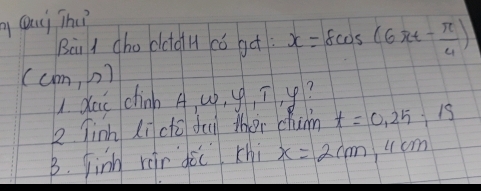 Quý Thu
Bài 1 cho dđđh có ptdđ : x = 8cos (6πt - π/4)
(cm, s)
1 Xác định A, ω, φ, T, f?
2. Tính li độ tại thời điểm t = 0,25 ; 1s
3. Tính vận tốc khi x = 2cm, 4cm